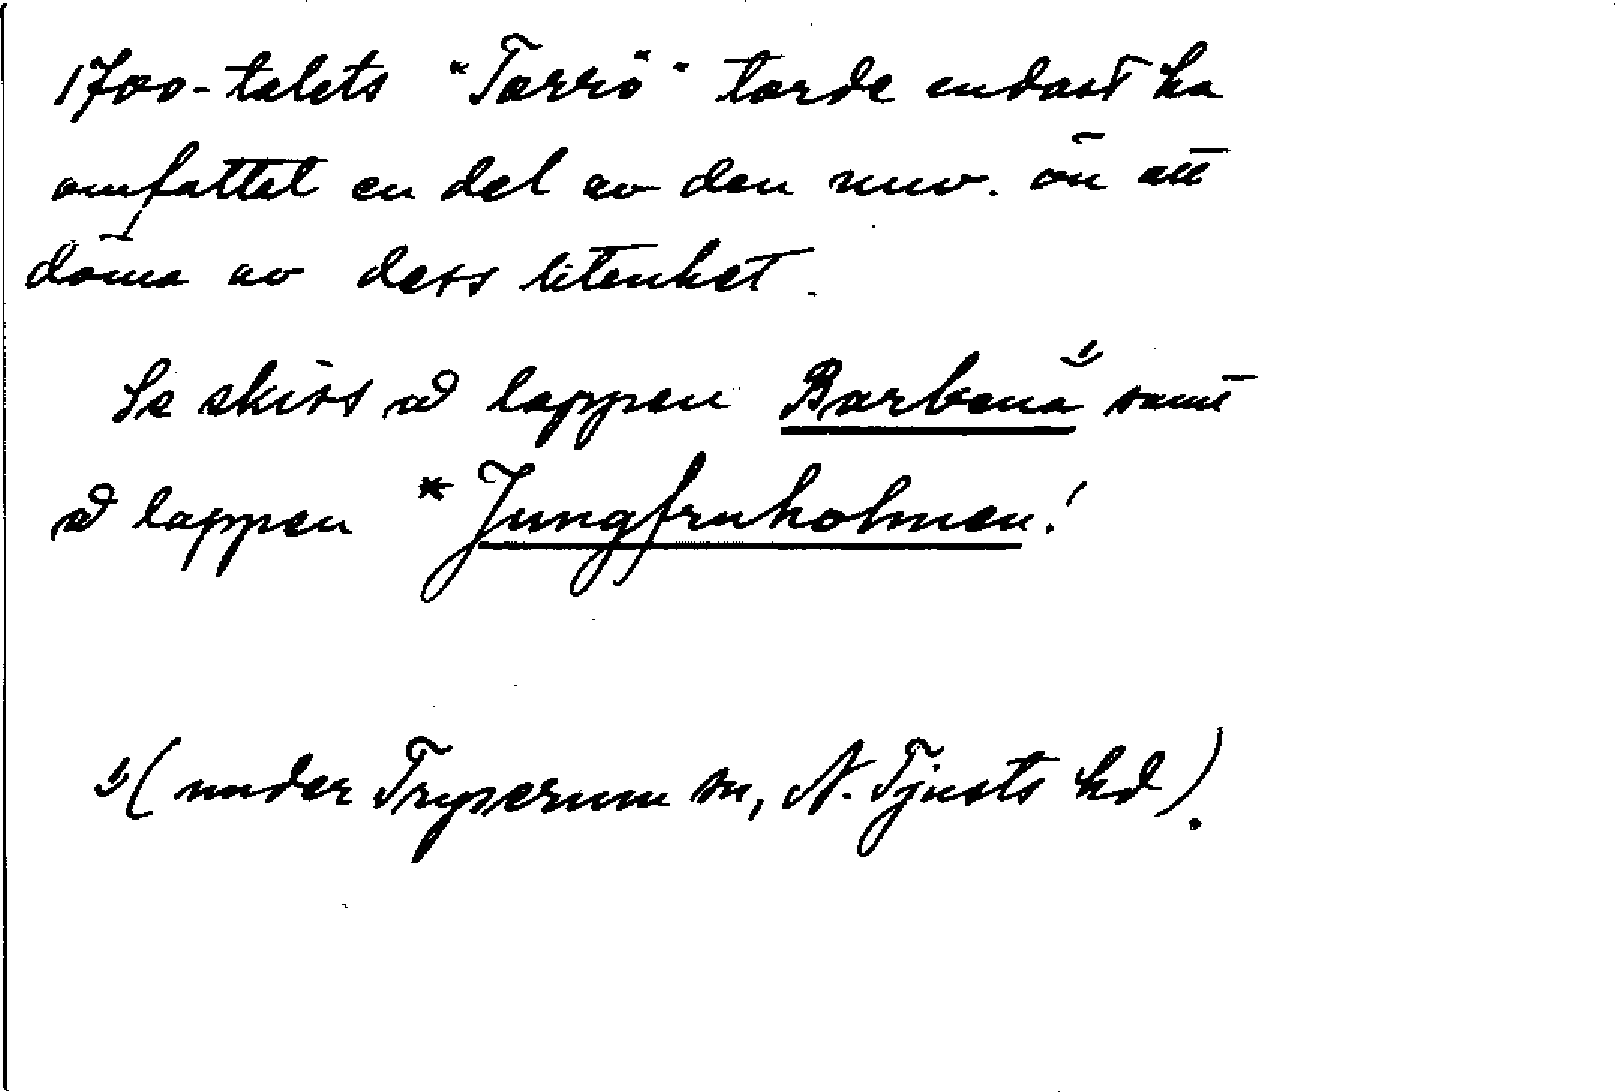 1700-talets "Torrö" torde endast ha
omfattet en del av den nuv. ön att
döma av dess litenhet.
Se skiss å lappen Barbenå 1) samt
å lappen * Jungfruholmen!
1) (under Tryserum sn, N. Tjusts hd).